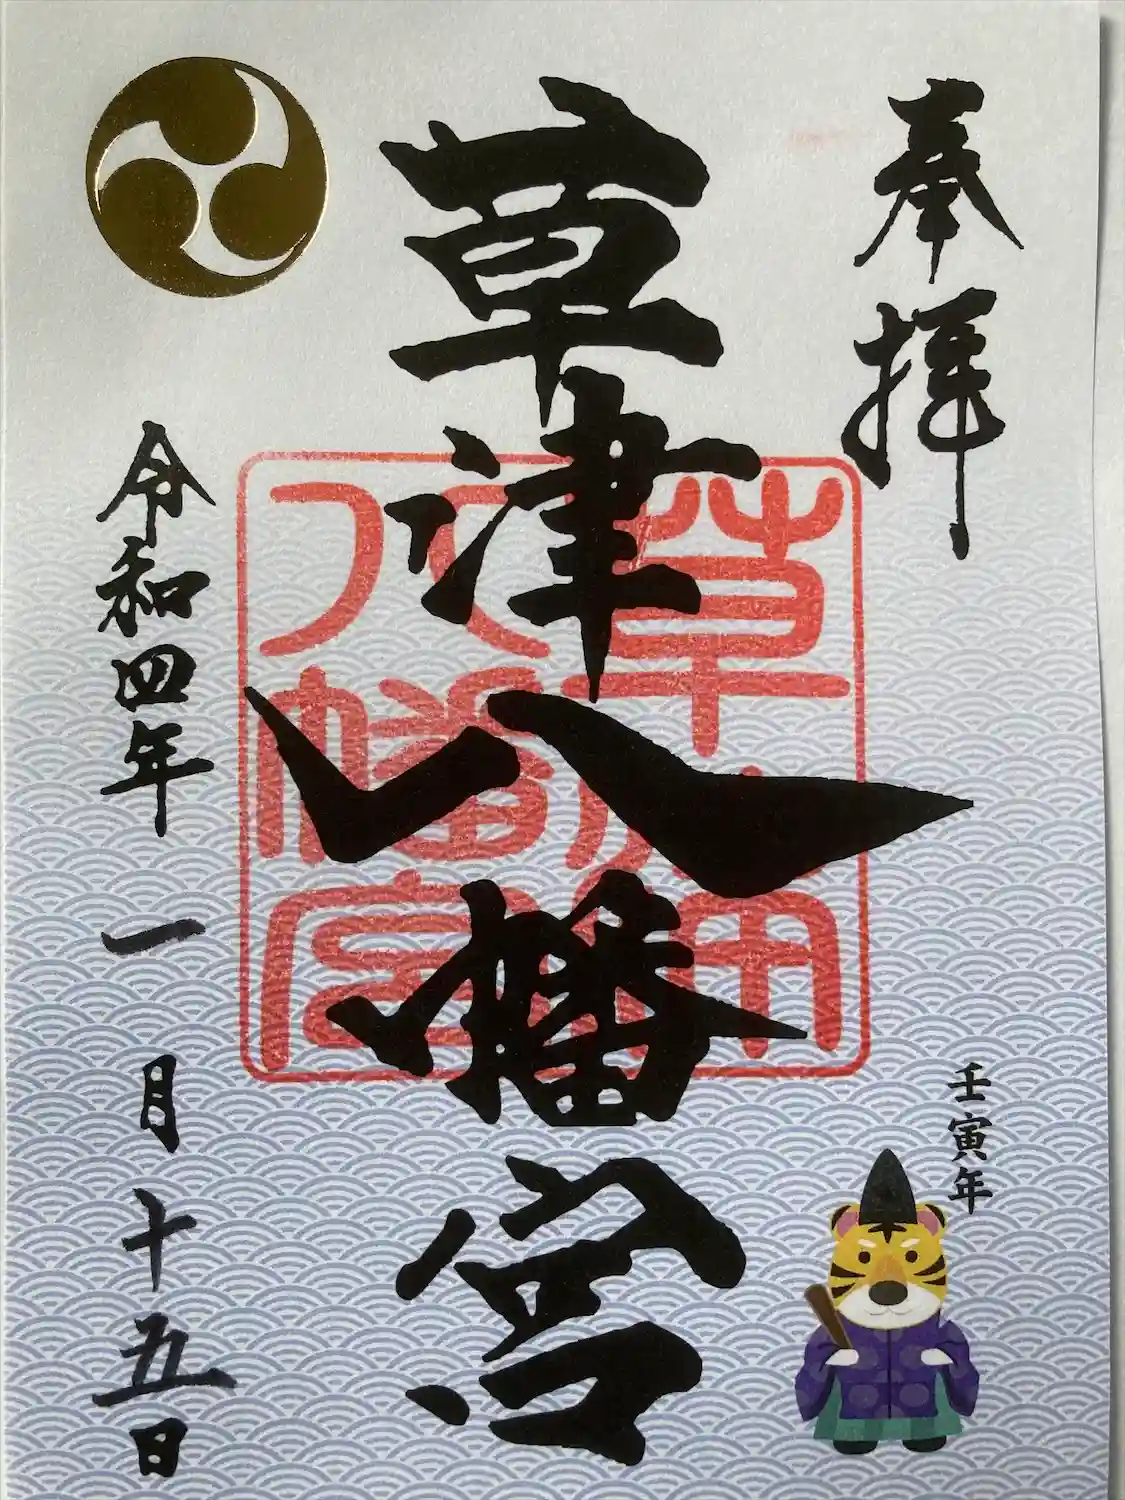 奉拝
草津八幡宮
草津
八幡宮
令和四年一月十五日
壬寅年